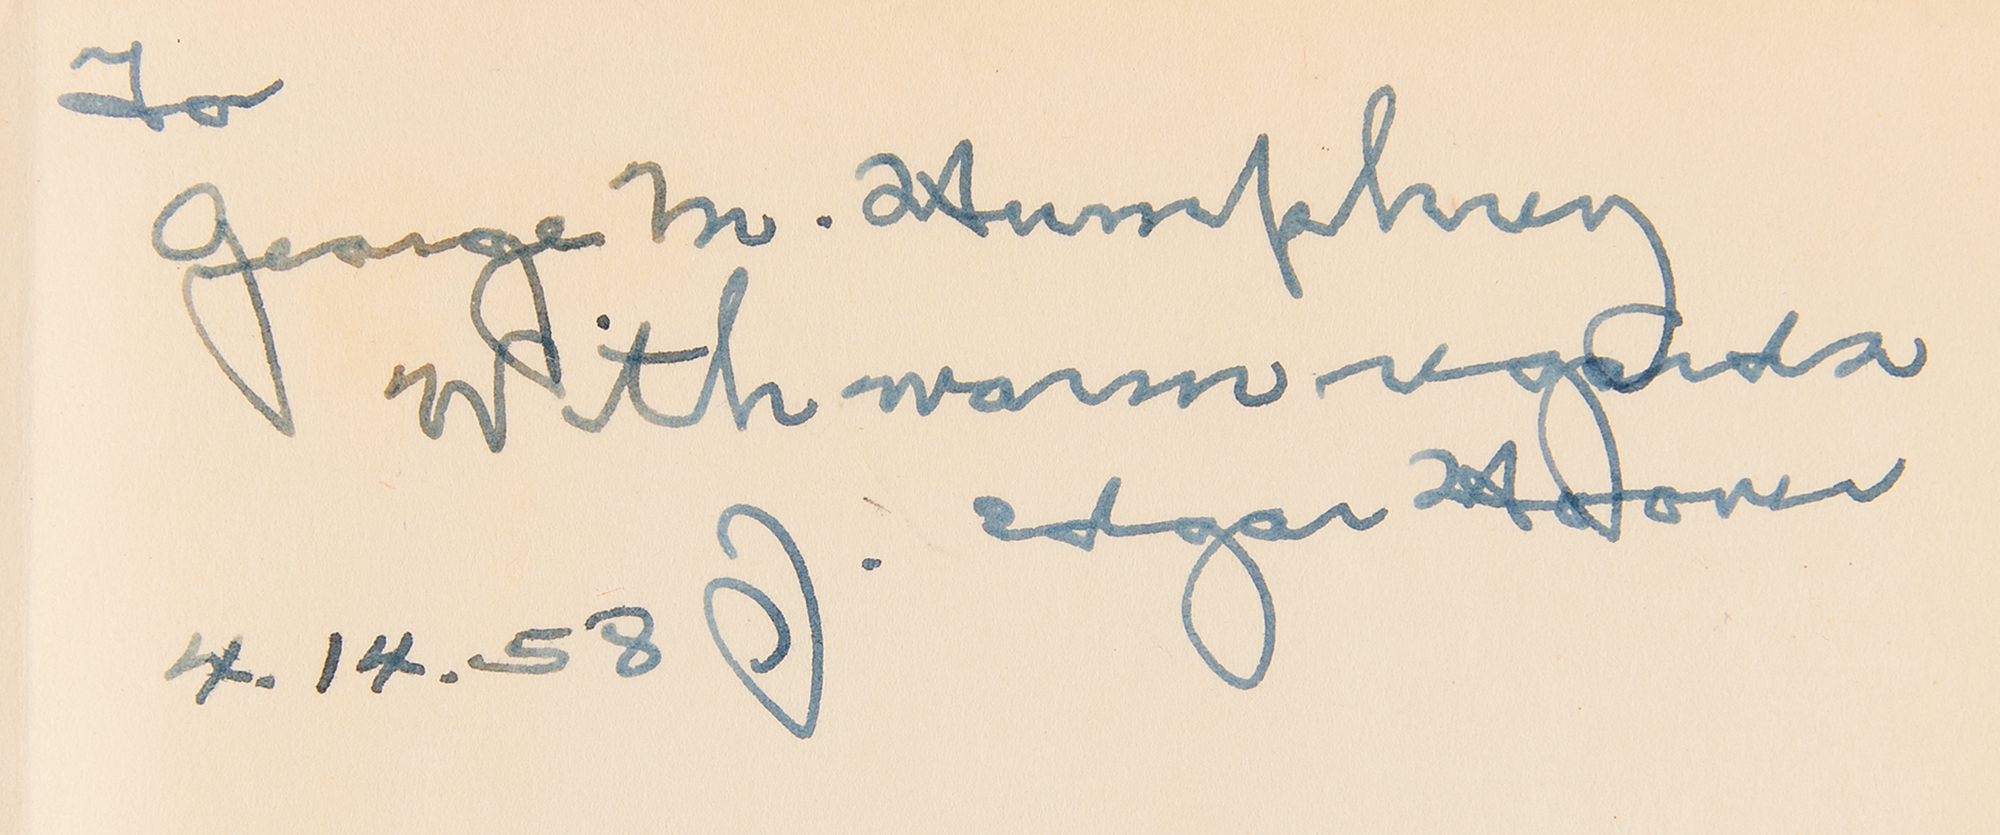 To
George M. Humphrey
With warm regards
J. Edgar Hoover
4.14.58